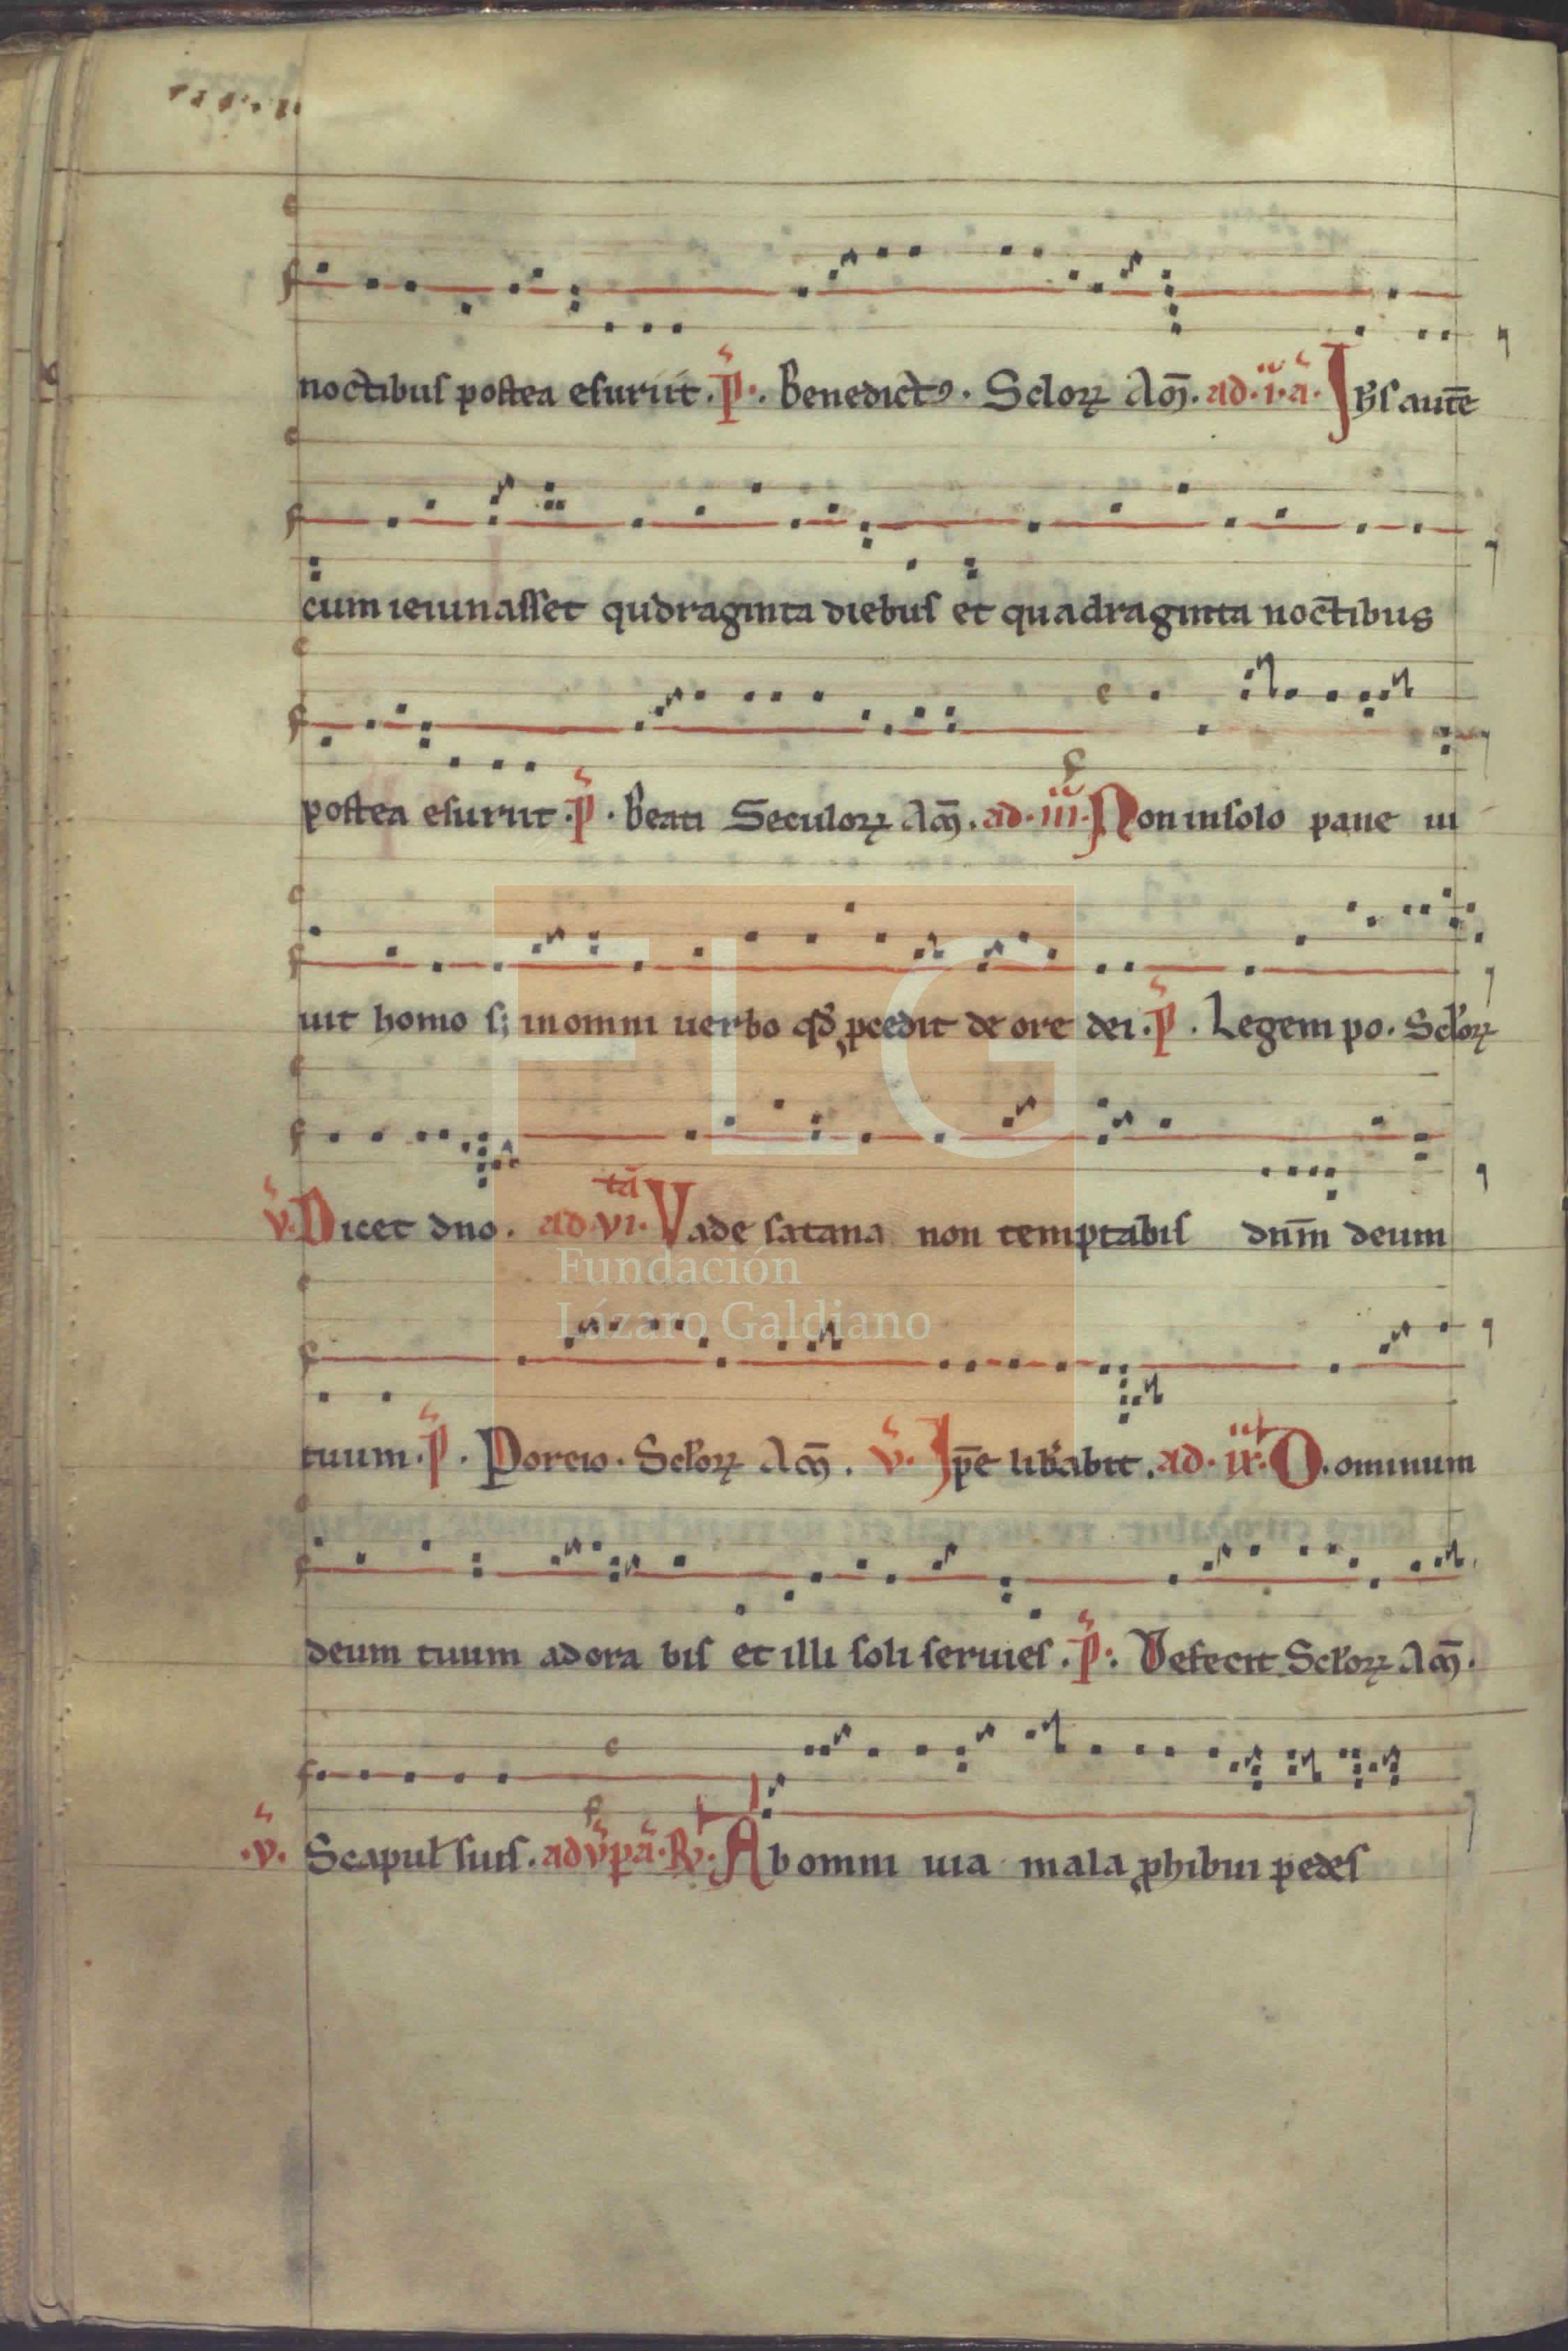 noctibus postea esuriit. p̄. Benedictꝰ. Sclorꝝ Am̄. ad .i.a. Ihs autē
cum ieiunasset qudraginta diebus et quadraginta noctibus
postea esuriit. p̄. Beati Seculorꝝ Am̄. ad .iii. Non in solo pane ui
uit homo s; in omni uerbo qd̄ ꝓcedit de ore dei. p̄. Legem po. Sclorꝝ
v̄. Dicet dno. ad .vi.tā Vade satana non temptabis dn̄m deum
tuum. p̄. Porcio. Sclorꝝ Am̄. v̄. Ip̄e lib̄abit. ad .ix. Dominum
deum tuum adora bis et illi soli seruies. p̄. Defecit Sclorꝝ Am̄.
.v̄. Scapul suis. ad v̄pā. R̷. Ab omni uia mala ꝓhibui pedes
FLG
Fundación
Lázaro Galdiano